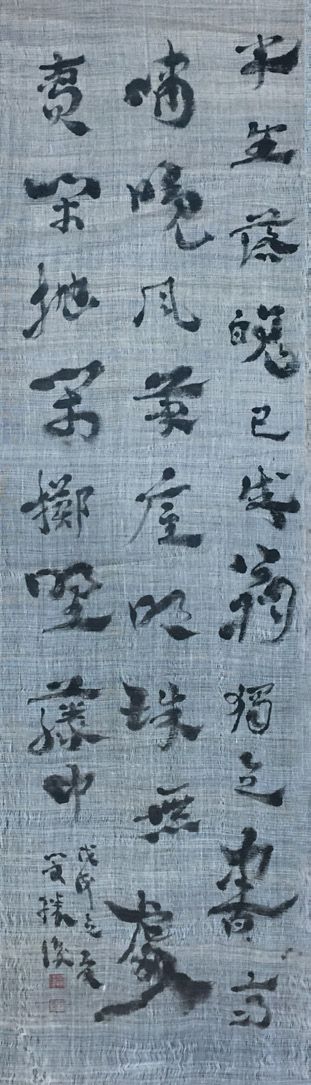 半生落魄已成翁獨立書齋
嘯晚風筆底明珠無處
賣閑拋閑擲野藤中